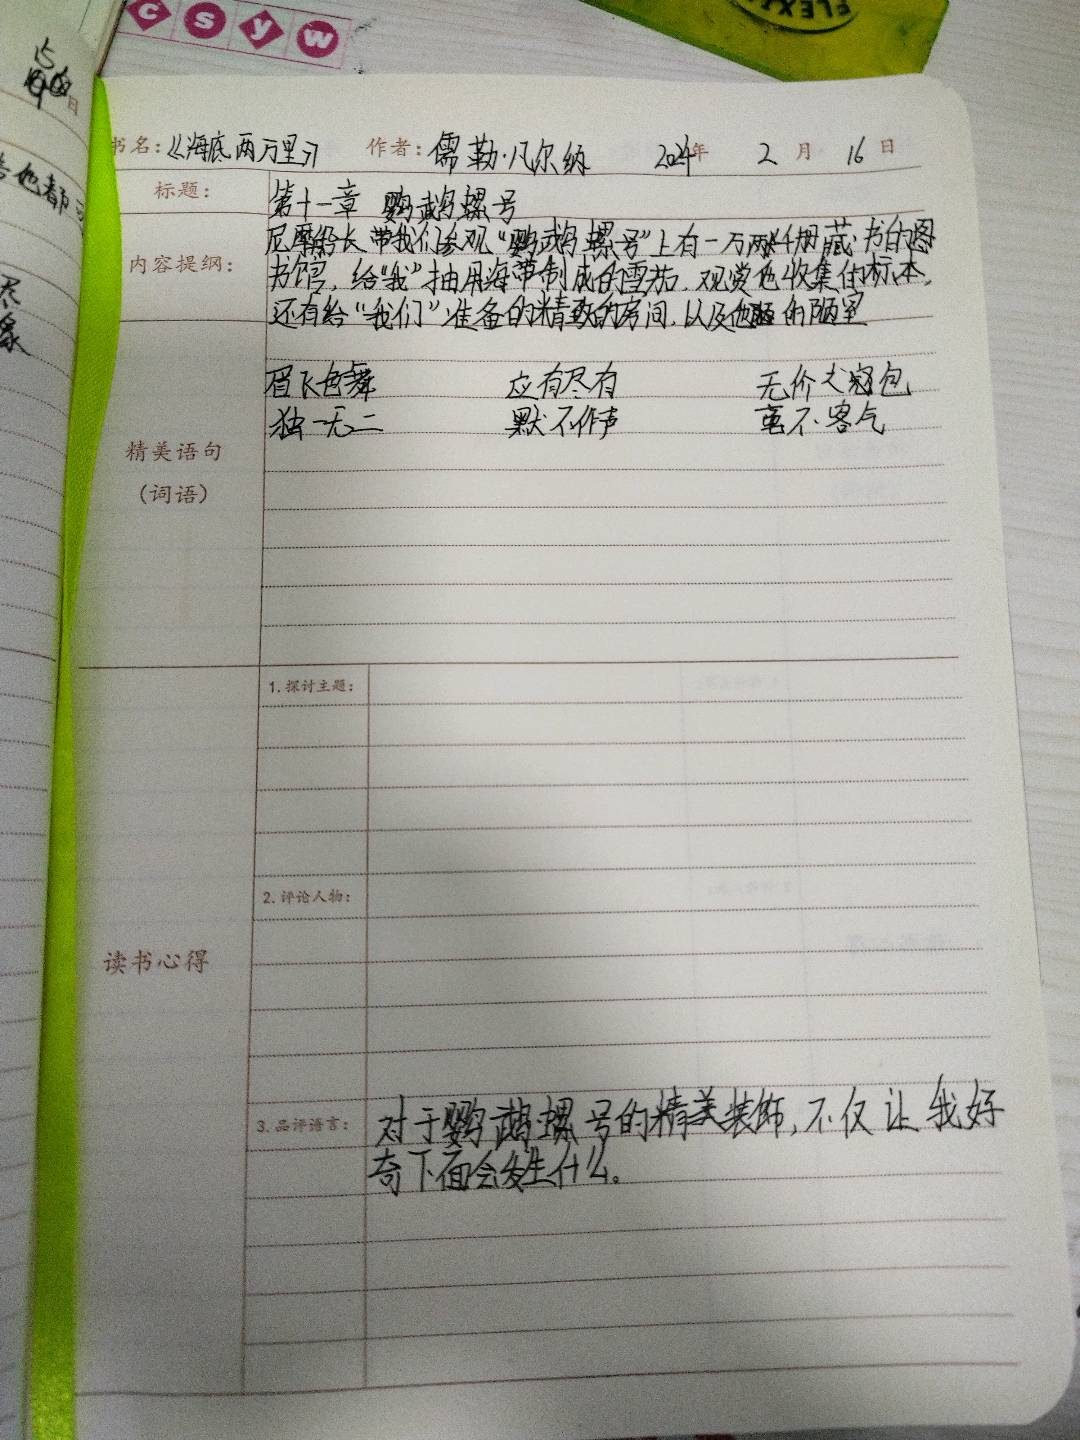 c s y w
FLEX
书名：《海底两万里》 作者：儒勒·凡尔纳 2024年 2月 16日
标题： 第十一章 鹦鹉螺号
内容提纲： 尼摩船长带我们参观“鹦鹉螺号”上有一万两千册藏书的图
书馆，给“我”抽用海带制成的雪茄，观赏他收集的标本，
还有给“我们”准备的精致的房间，以及他的陋室
精美语句
（词语）
眉飞色舞 应有尽有 无价之宝
独一无二 默不作声 毫不客气
读书心得
1. 探讨主题：
2. 评论人物：
3. 品评语言： 对于鹦鹉螺号的精美装饰，不仅让我好
奇下面会发生什么。